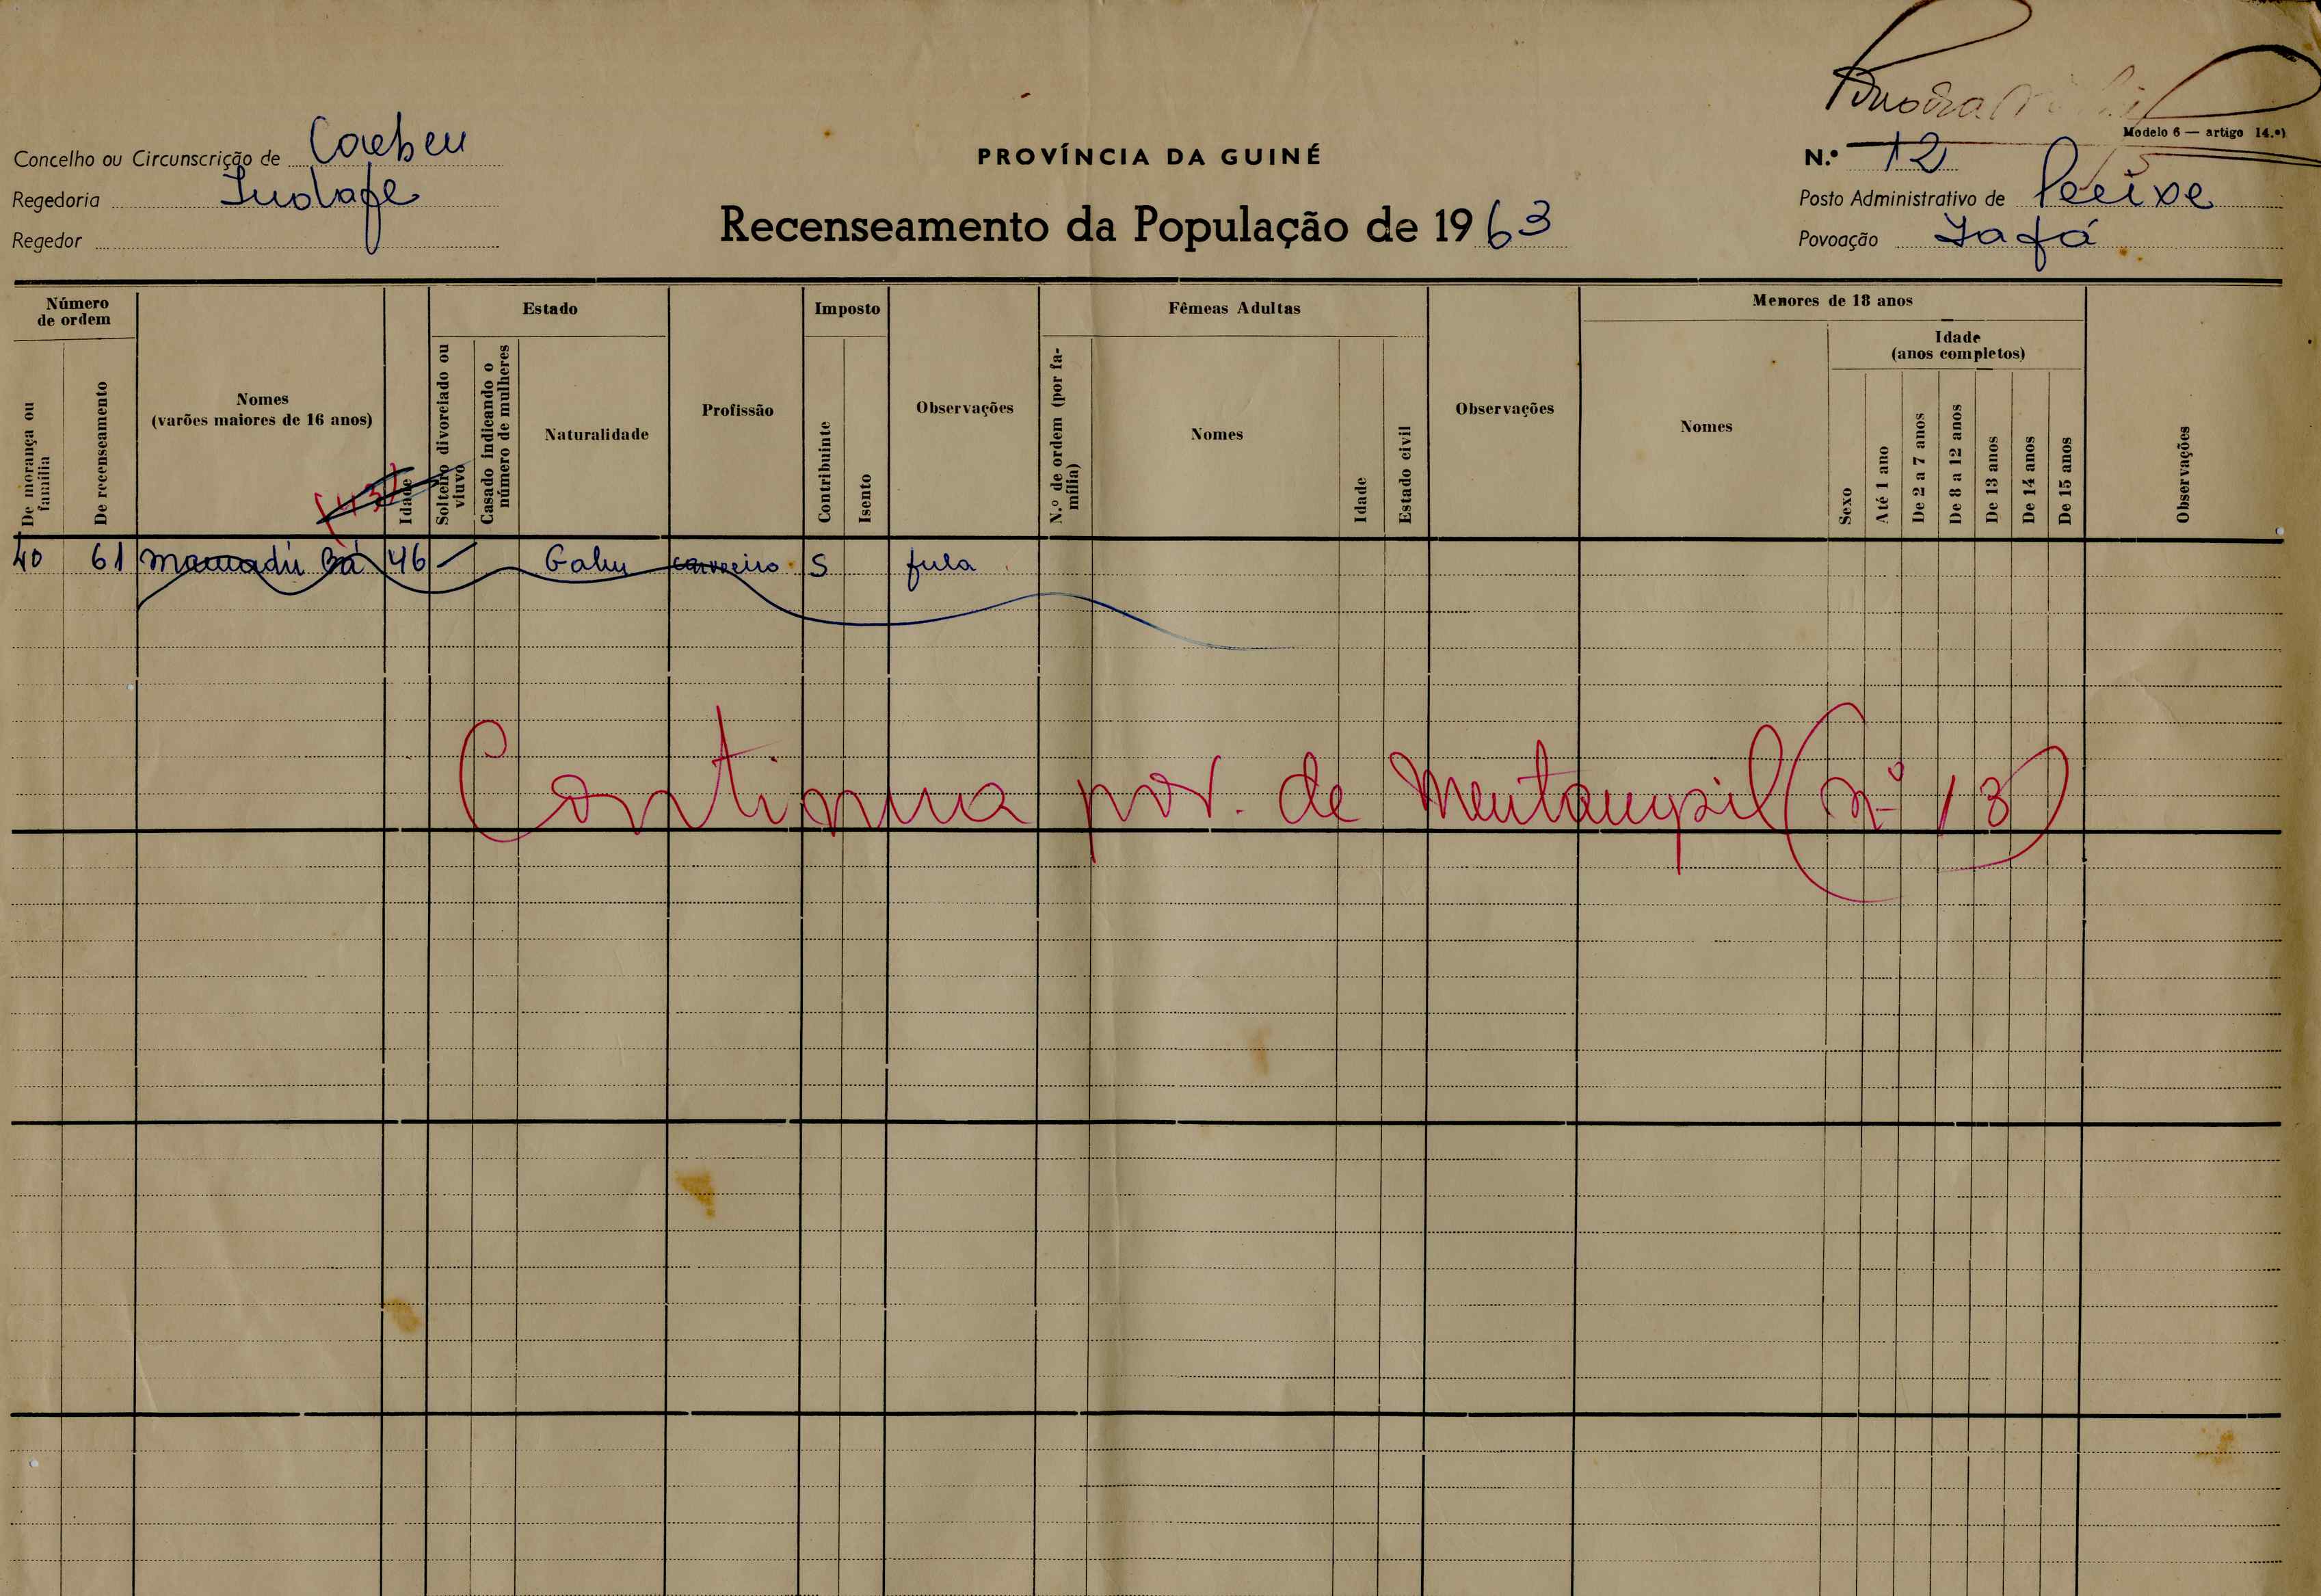 Modelo 6 — artigo 14.º)
Concelho ou Circunscrição de Caebeu
PROVÍNCIA DA GUINÉ
N.º 12
Regedoria
Posto Administrativo de Peeixe
Recenseamento da População de 1963
Regedor
Povoação Jafá
Número de ordem
De morança ou família
De recenseamento
Nomes
(varões maiores de 16 anos)
Idade
Estado
Solteiro divorciado ou viuvo
Casado indicando o número de mulheres
Naturalidade
Profissão
Imposto
Contribuinte
Isento
Observações
Fêmeas Adultas
N.º de ordem (por família)
Nomes
Idade
Estado civil
Observações
Menores de 18 anos
Nomes
Sexo
Idade
(anos completos)
Até 1 ano
De 2 a 7 anos
De 8 a 12 anos
De 13 anos
De 14 anos
De 15 anos
Observações
(43)
40 61 Mamadú Bá 46 — Gabu S fula
Continua pov. de Mentampil (nº 13)